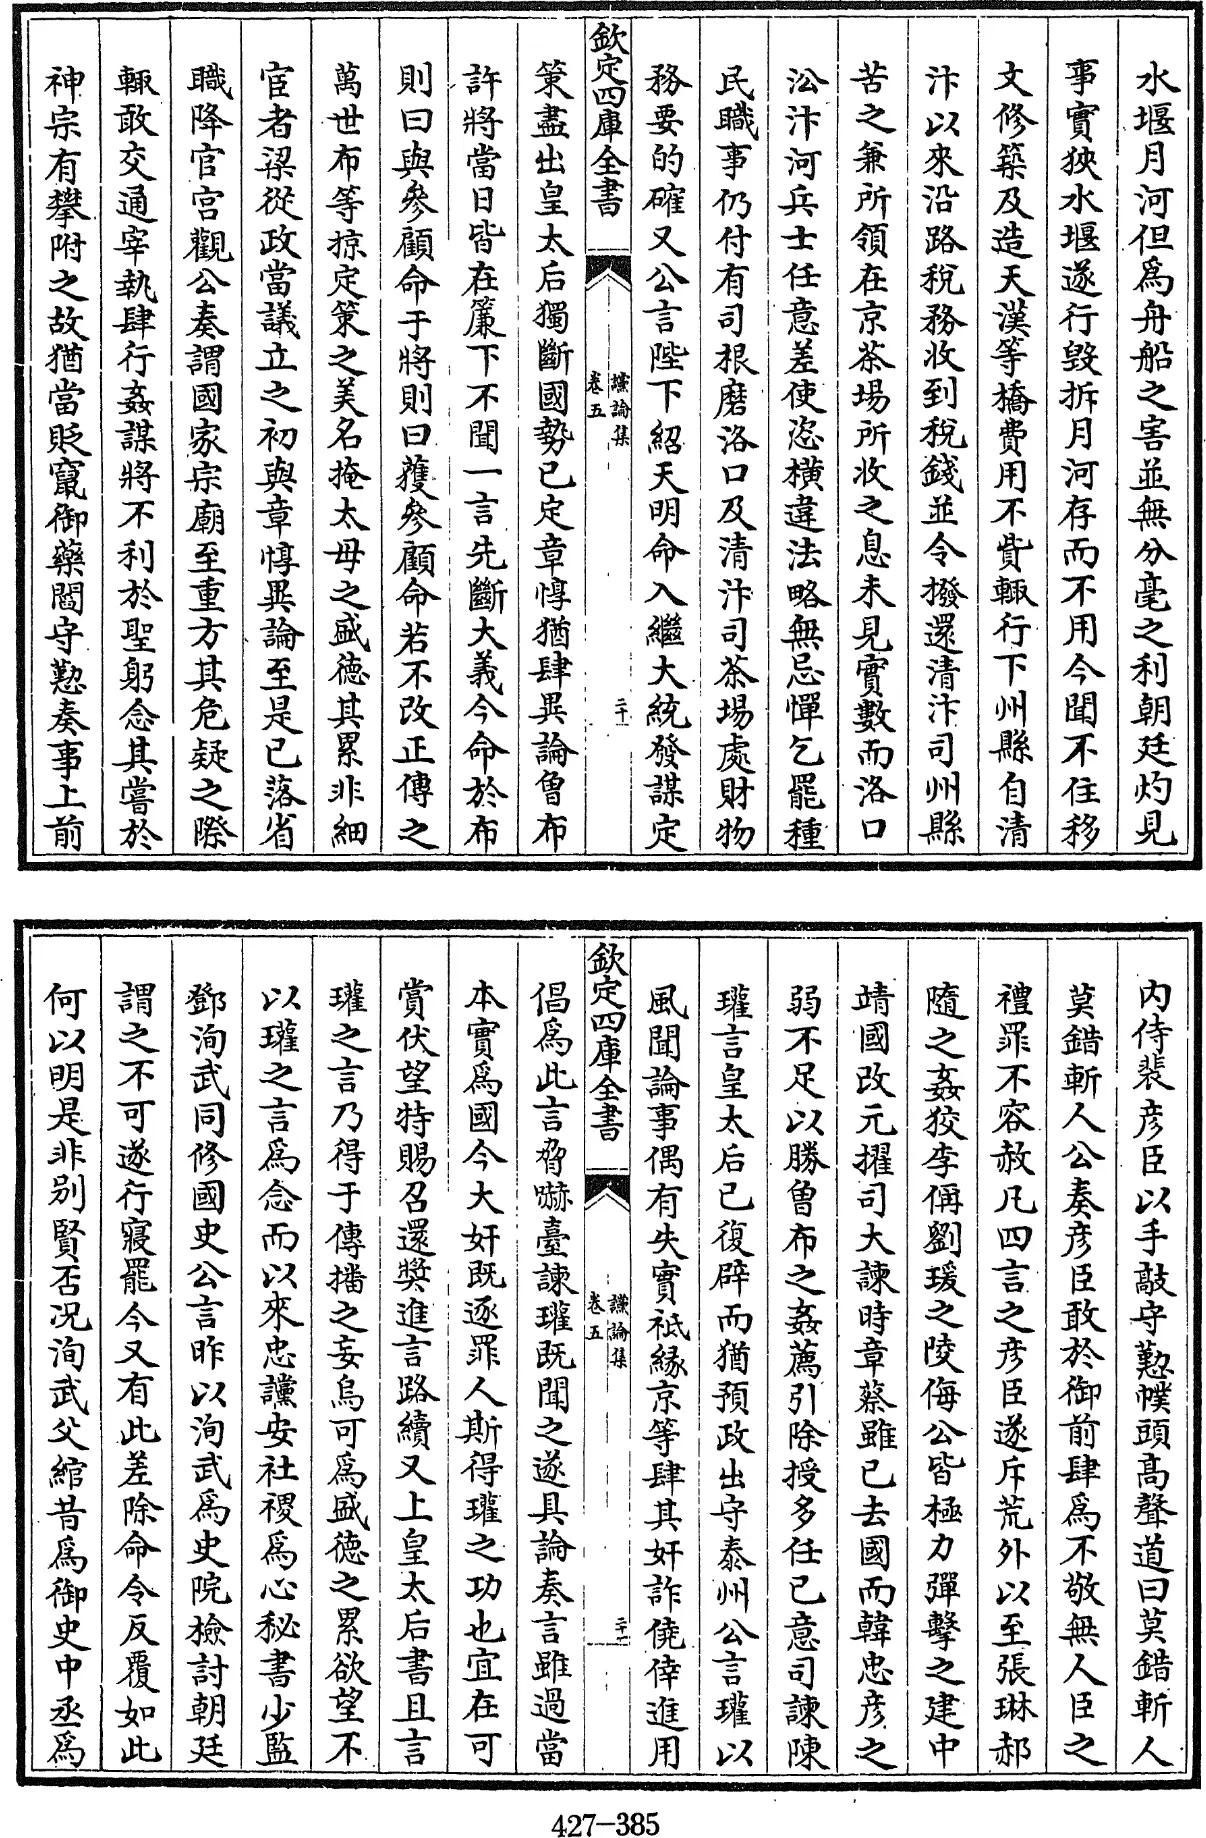 水堰月河但爲舟船之害並無分毫之利朝廷灼見
事實狹水堰遂行毀拆月河存而不用今聞不住移
文修築及造天漢等橋費用不貲輒行下州縣自清
汴以來沿路稅務收到稅錢並令撥還清汴司州縣
苦之兼所領在京茶場所收之息未見實數而洛口
汴河兵士任意差使恣橫違法略無忌憚乞罷種
民職事仍付有司根磨洛口及清汴司茶場處財物
務要的確又公言陛下紹天明命入繼大統發謀定
欽定四庫全書
讜論集
卷五
二十
策盡出皇太后獨斷國勢已定章惇猶肆異論曾布
許將當日皆在簾下不聞一言先斷大義今命於布
則曰與參顧命于將則曰獲參顧命若不改正傳之
萬世布等掠定策之美名掩太母之盛德其累非細
宦者梁從政當議立之初與章惇異論至是已落省
職降官宮觀公奏謂國家宗廟至重方其危疑之際
輒敢交通宰執肆行姦謀將不利於聖躬念其嘗於
神宗有攀附之故猶當貶竄御藥閻守懃奏事上前
內侍裴彥臣以手敲守懃幞頭高聲道曰莫錯斬人
莫錯斬人公奏彥臣敢於御前肆爲不敬無人臣之
禮罪不容赦凡四言之彥臣遂斥荒外以至張琳郝
隨之姦狡李偁劉瑗之陵侮公皆極力彈擊之建中
靖國改元擢司大諫時章蔡雖已去國而韓忠彥之
弱不足以勝曾布之姦薦引除授多任已意司諫陳
瓘言皇太后已復辟而猶預政出守泰州公言瓘以
風聞論事偶有失實祇緣京等肆其奸詐僥倖進用
欽定四庫全書
讜論集
卷五
二十一
倡爲此言脅嚇臺諫瓘既聞之遂具論奏言雖過當
本實爲國今大奸既逐罪人斯得瓘之功也宜在可
賞伏望特賜召還奬進言路續又上皇太后書且言
瓘之言乃得于傳播之妄烏可爲盛德之累欲望不
以瓘之言爲念而以來忠讜安社稷爲心秘書少監
鄧洵武同修國史公言昨以洵武爲史院檢討朝廷
謂之不可遂行寢罷今又有此差除命令反覆如此
何以明是非别賢否况洵武父綰昔爲御史中丞爲
427-385